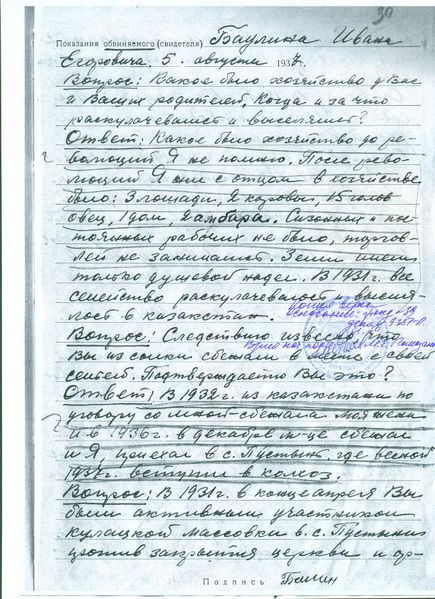 30
Показания обвиняемого (свидетеля) Баулина Ивана
Егоровича, 5. августа 1937г.
Вопрос: Какое было хозяйство у Вас
и Ваших родителей, когда и за что
раскулачевались и выселялись?
Ответ: Какое было хозяйство до ре-
волюции я не помню. После рево-
люции я жил с отцом в хозяйстве
было: 3 лошади, 2 коровы, 15 голов
овец, 1 дом, 2 амбара. Сизонных и пос-
тоянных рабочих не было, торгов-
лей не занимался. Земли имели
только душевой надел. В 1931г. все
семейство раскулачевалось и высля-
лось в казахстан.
Вопрос: Следствию известно, что
Вы из ссылки сбежали в месте с своей
семьей. Подтверждаете Вы это?
Ответ: В 1932г. из казахстана по
уговору со мной сбежала моя жена
и в 1936г. в декабре м-це сбежал
и я приехал в с. Пустынь, где весной
1937г. вступил в колхоз.
Вопрос: В 1931г. в конце апреля Вы
были активным участником
кулацкой массовки в с. Пустынь
против закрытия церкви и ор-
Подпись Баулин